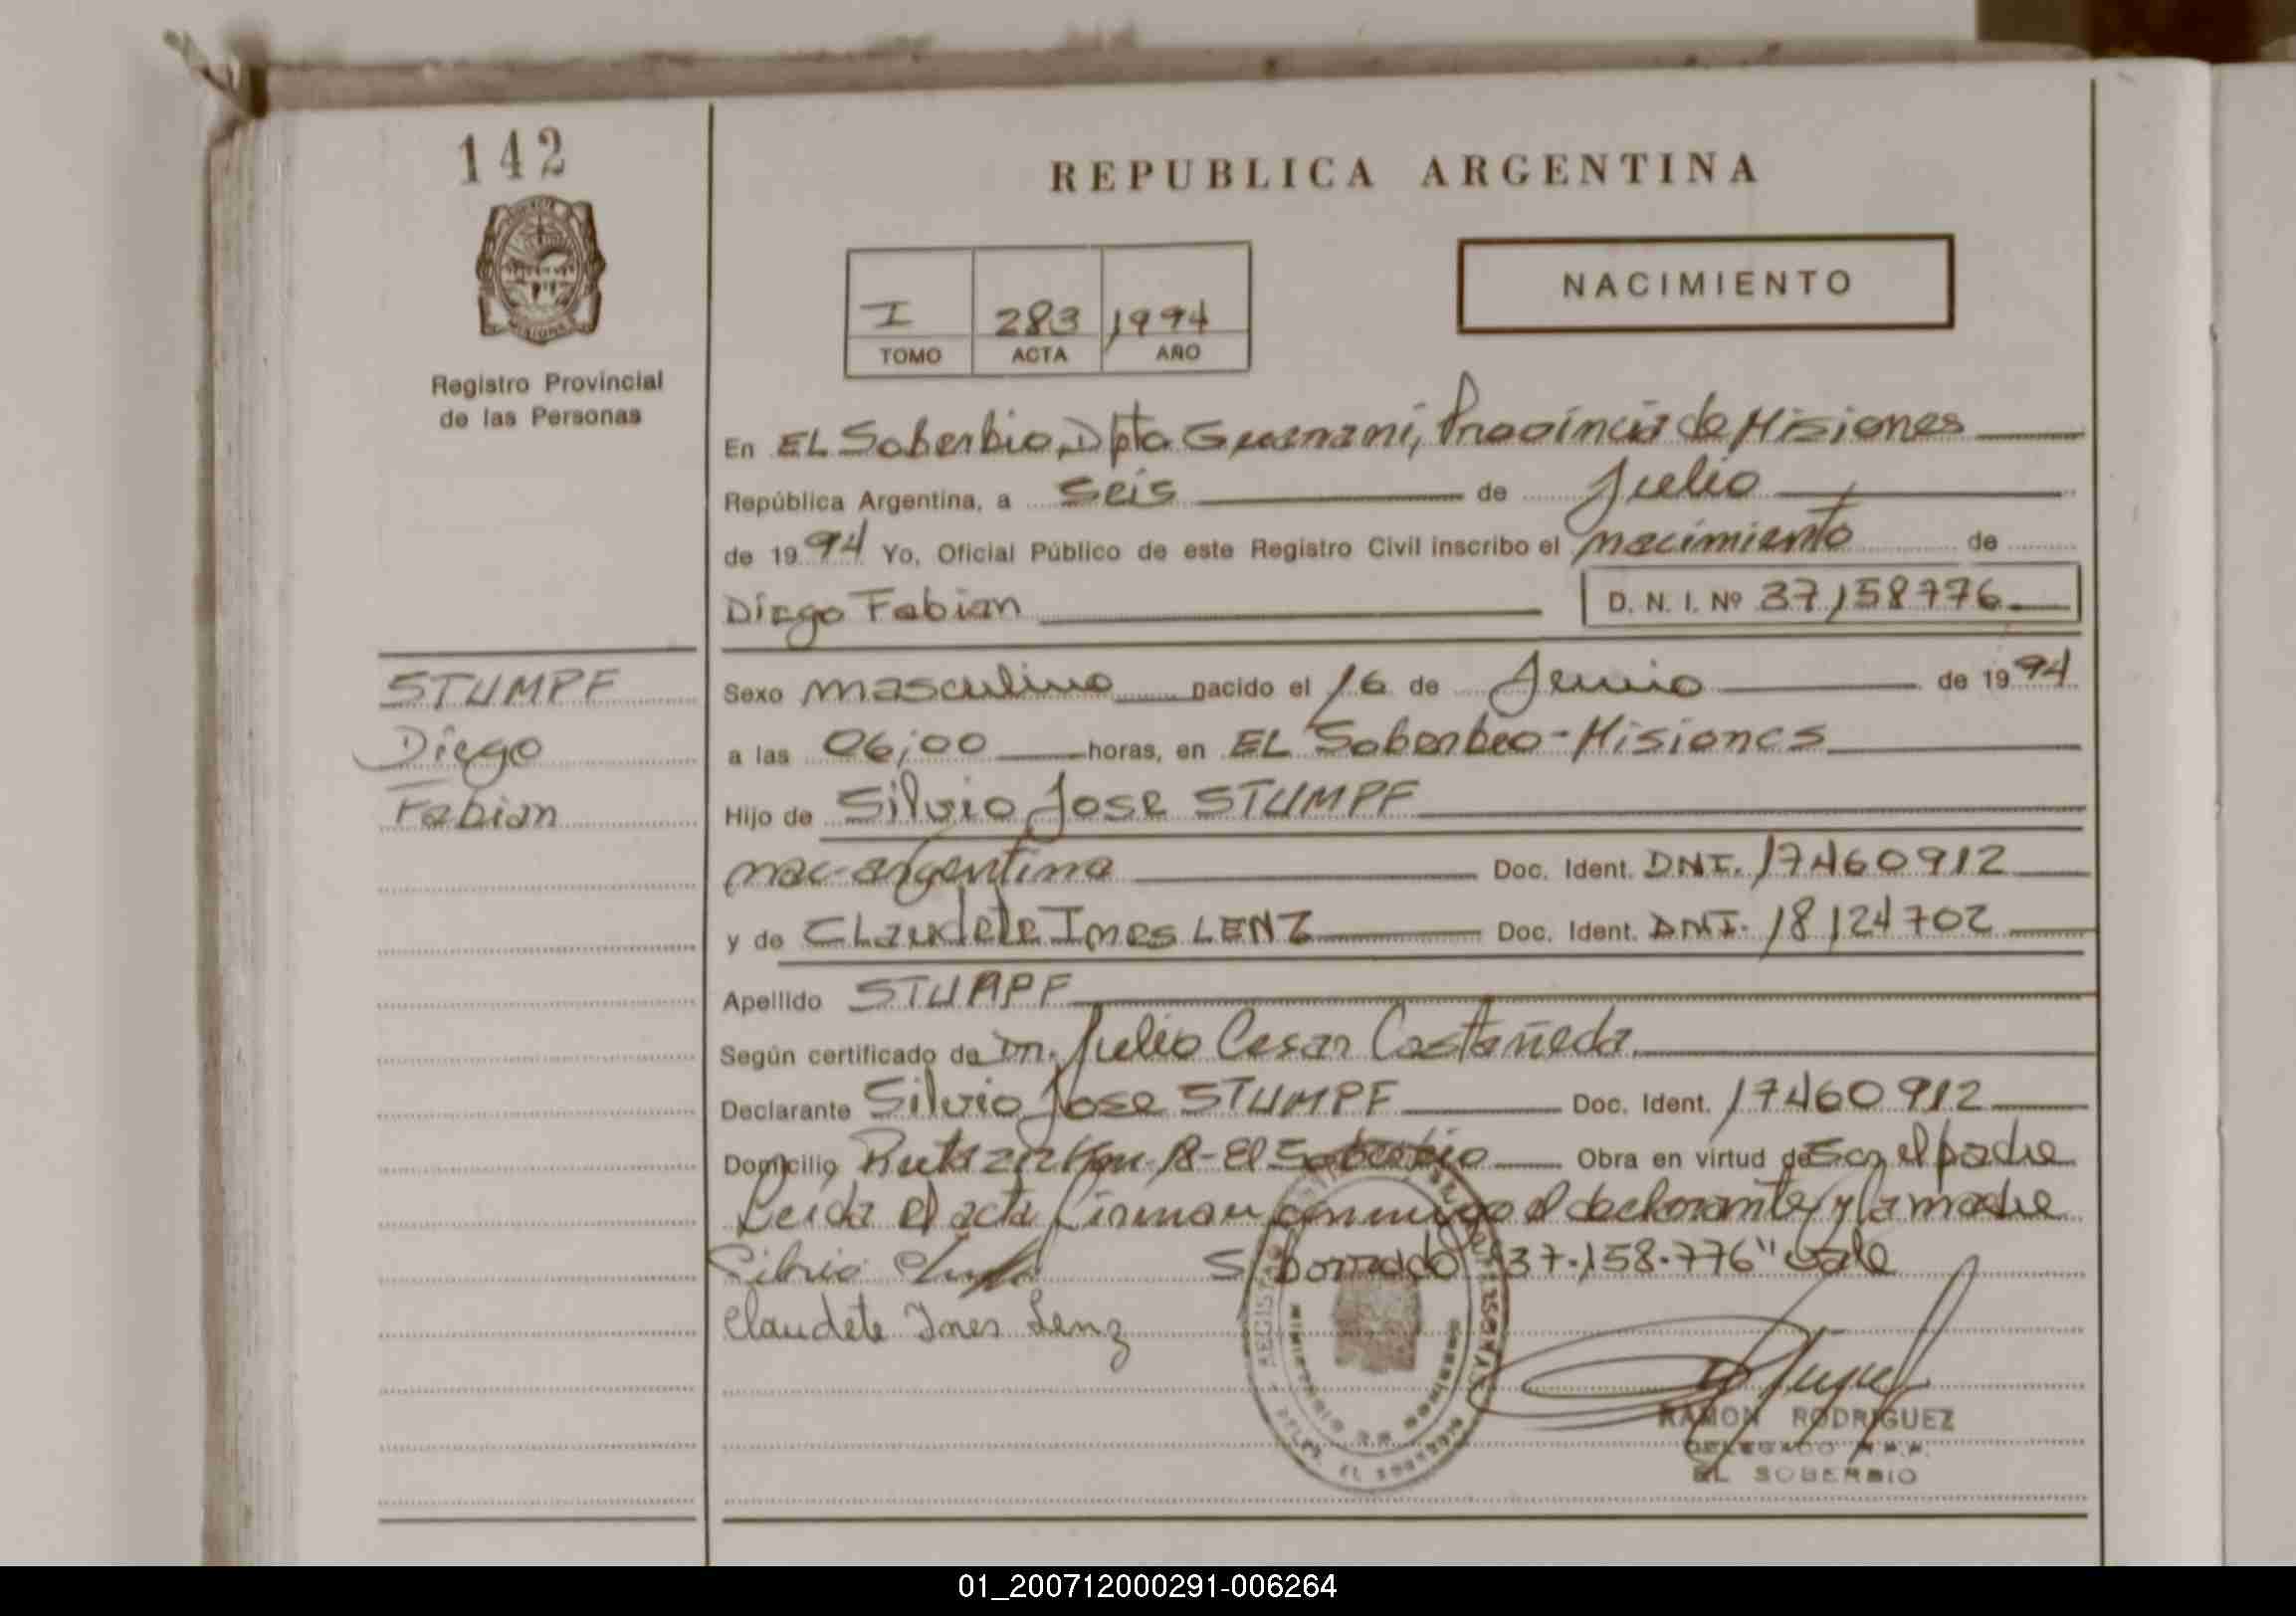 142
REPUBLICA ARGENTINA
NACIMIENTO
I 283 1994
TOMO ACTA AÑO
Registro Provincial
de las Personas
En EL Soberbio, Dpto Guarani, Provincia de Misiones
República Argentina, a seis de Julio
de 1994 Yo, Oficial Público de este Registro Civil inscribo el nacimiento de
Diego Fabian D. N. I. Nº 37158776
STUMPF
Diego
Fabian
Sexo masculino nacido el 16 de Junio de 1994
a las 06;00 horas, en EL Soberbio - Misiones
Hijo de Silvio Jose STUMPF
nac-argentina Doc. Ident. DNI. 17460912
y de CLaudete Ines LENZ Doc. Ident. DNI. 18124702
Apellido STUMPF
Según certificado de Dr. Julio Cesar Castañeda
Declarante Silvio Jose STUMPF Doc. Ident. 17460912
Domicilio Ruta El Soberbio Obra en virtud de ser el padre
Leida el acta firman conmigo el declarante y la madre
Silvio S/borrado "37.158.776" vale
Claudete Ines Lenz
RAMON RODRIGUEZ
DELEGADO R.P.P.
EL SOBERBIO
01_200712000291-006264